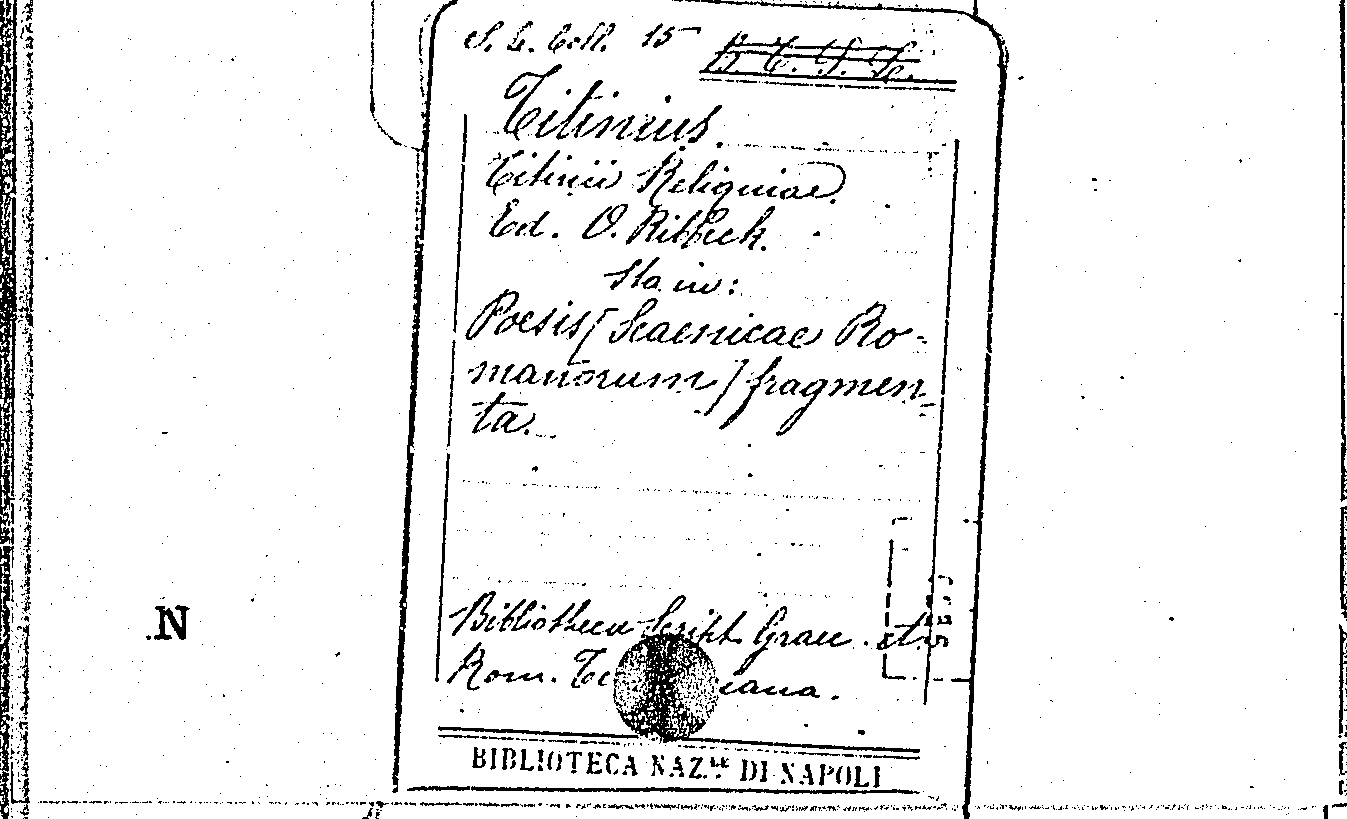 S. L. Coll. 15 B. T. S. L.
Titinius.
Titinii Reliquiae.
Ed. O. Ribbeck.
Sta in:
Poesis [Scaenicae Ro-
manorum] fragmen-
ta.
Bibliotheca Script. Graec. et
Rom. Te iana.
N
BIBLIOTECA NAZ.LE DI NAPOLI